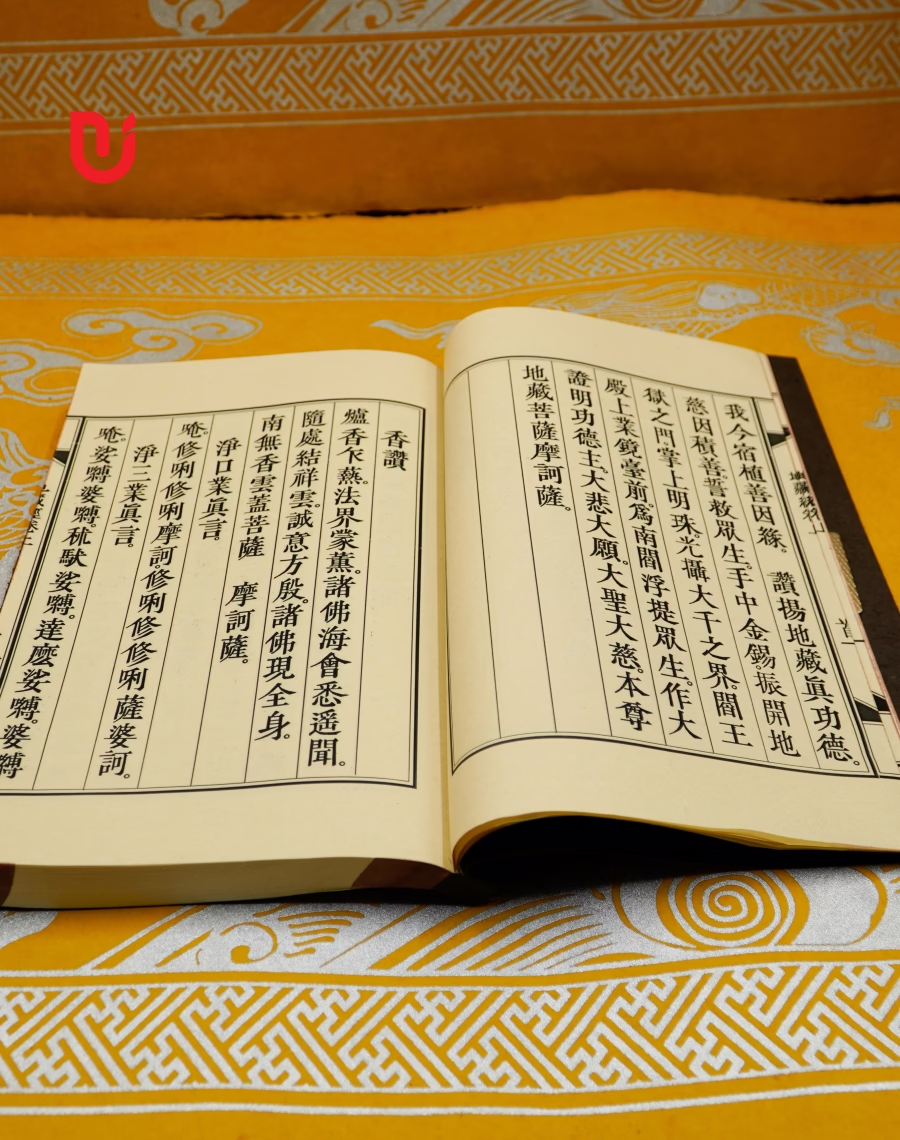 我今宿植善因緣。　讚揚地藏眞功德。
慈因積善。誓救眾生。手中金錫。振開地
獄之門。掌上明珠。光攝大千之界。閻王
殿上。業鏡臺前。爲南閻浮提眾生。作大
證明功德主。大悲大願。大聖大慈。本尊
地藏菩薩摩訶薩。
香讚
爐香乍爇。法界蒙薰。諸佛海會悉遥聞。
隨處結祥雲。誠意方殷。諸佛現全身。
南無香雲蓋菩薩　摩訶薩。
淨口業眞言。
唵。修唎修唎摩訶。修唎修修唎薩婆訶。
淨三業眞言。
唵。娑嚩婆嚩。秫馱娑嚩。達麽娑嚩。婆嚩